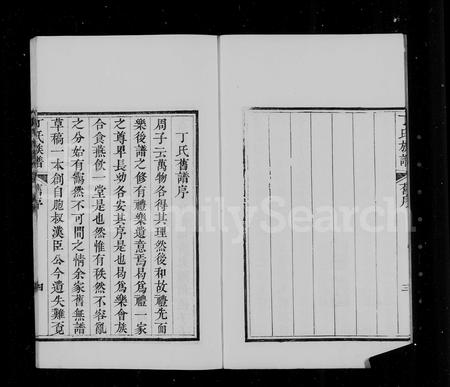 丁氏族譜
舊序
三
丁氏舊譜序
周子云萬物各得其理然後和故禮先而
樂後譜之修有禮樂遺意焉曷爲禮一家
之尊卑長幼各安其序是也曷爲樂會族
合食燕飲一堂是也然惟有秩然不容亂
之分始有靄然不可間之情余家舊無譜
草稿一本創自胞叔漢臣公今遺失難覓
丁氏族譜
舊序
四
FamilySearch